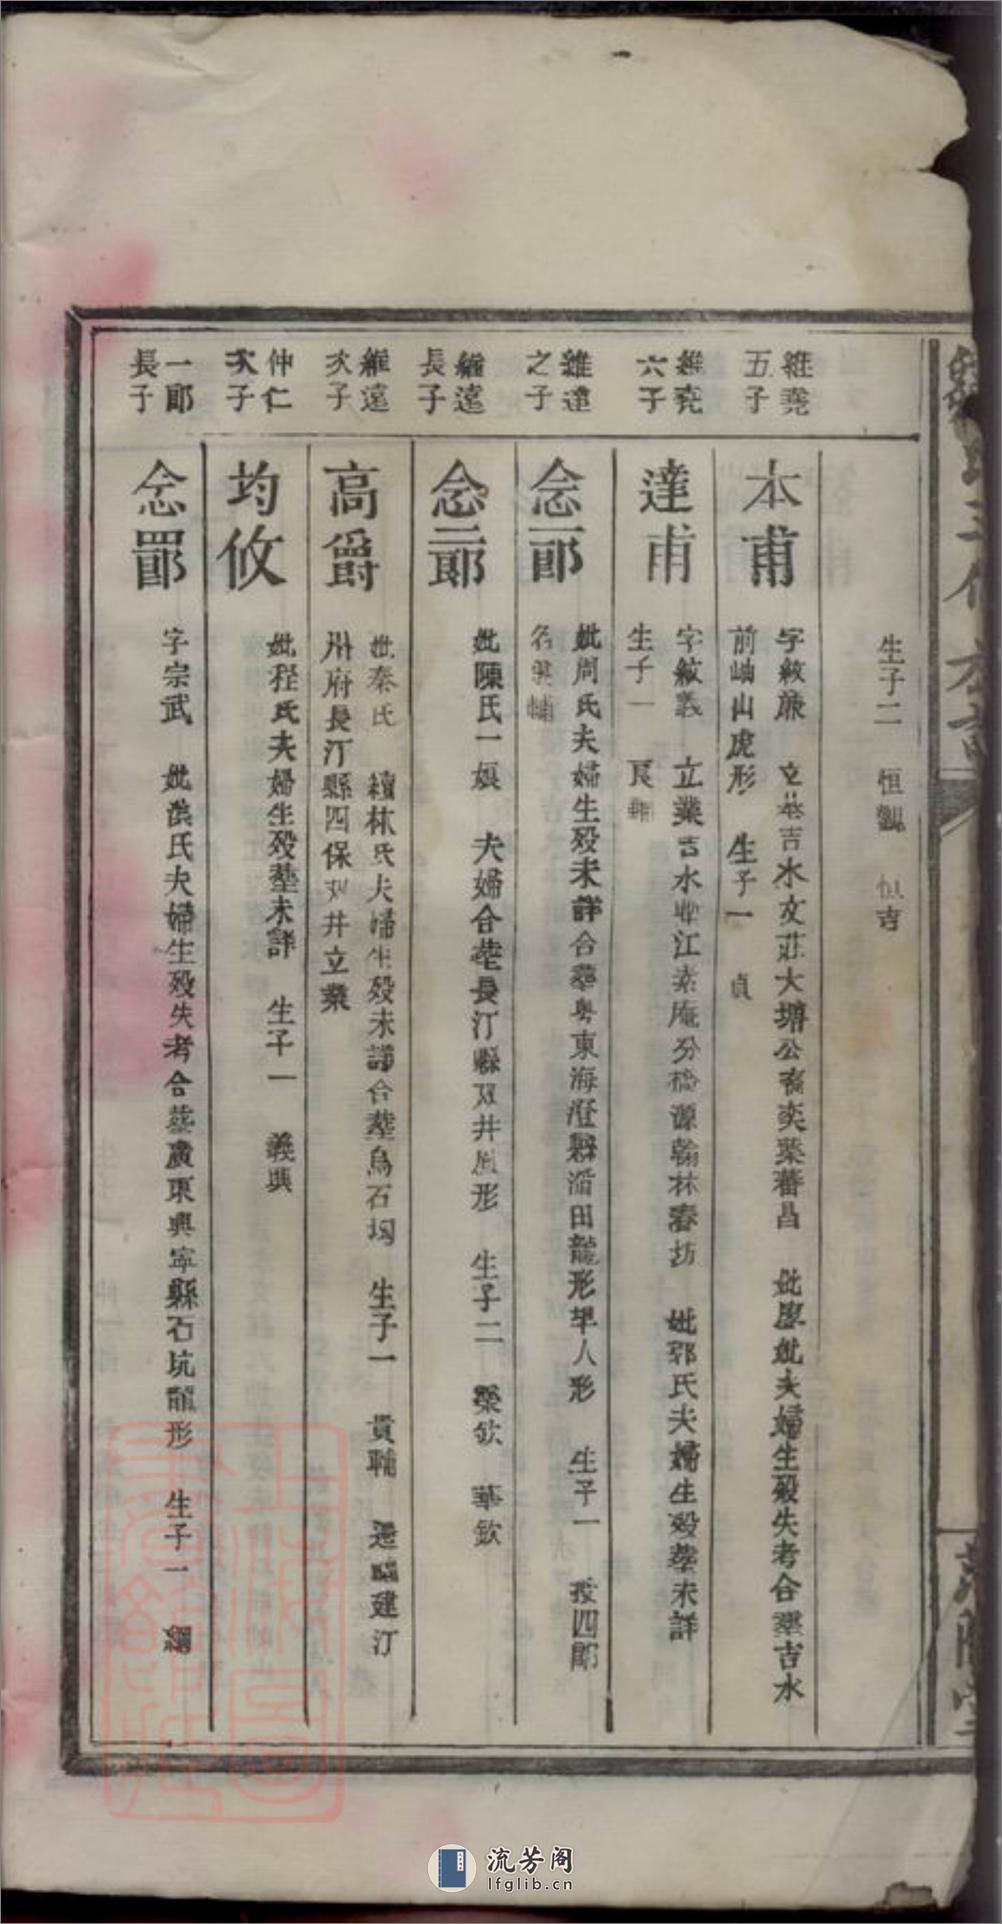 生子二　恒觀　似吉
維堯
五子
本甫
字紋廉　立業吉水文莊大塘公裔奕葉蕃昌　妣廖妣夫婦生歿失考合塟吉水
前岫山虎形　生子一　貞
維堯
六子
達甫
字紋義　立業吉水　江素庵分　源翰林春坊　妣郭氏夫婦生歿塟未詳
生子一　良輔
維達
之子
念一郎
妣周氏夫婦生歿未詳合塟粵東海澄縣　田龍形犁人形　生子一　四郎
名興輔
維遠
長子
念二郎
妣陳氏一娘　夫婦合塟長汀縣双井　形　生子二　榮欽　華欽
維遠
次子
高爵
妣秦氏　續林氏夫婦生歿未詳合塟烏石坳　生子一　貫輔　遷　建汀
州府長汀縣四保双井立業
仲仁
次子
均攸
妣程氏夫婦生歿塟未詳　生子一　義興
一郎
長子
念四郎
字宗武　妣洪氏夫婦生歿失考合塟廣東興寧縣石坑龍形　生子一　綱
流芳阁
lfglib.cn